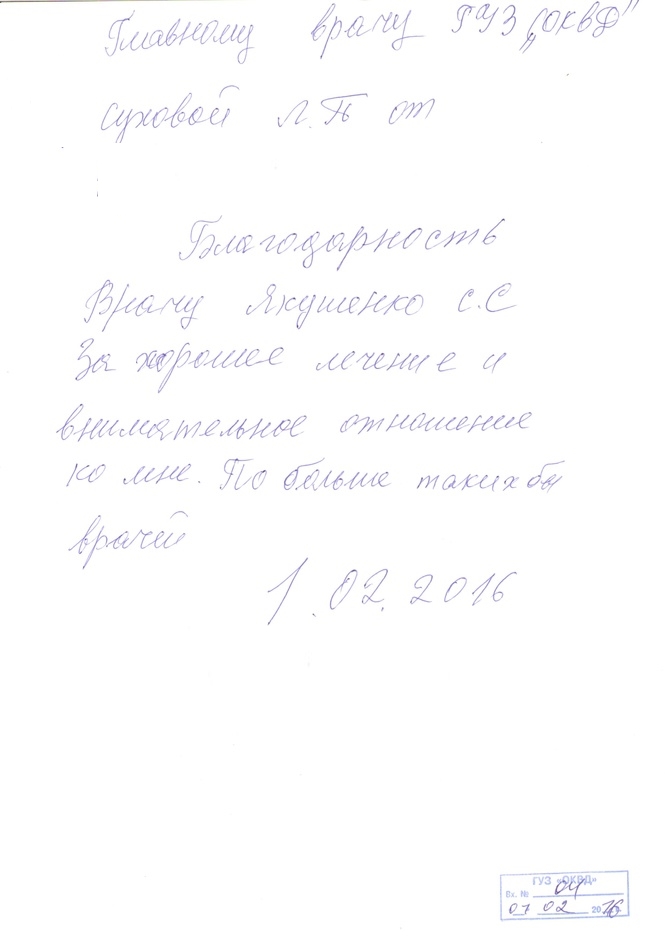 Главному врачу ГУЗ „ОКВД"
Суховой Л.П от
Благодарность
Врачу Якушенко С.С
За хорошее лечение и
внимательное отношение
ко мне. По больше таких бы
врачей
1.02.2016
ГУЗ «ОКВД»
Вх. № 04
01 02 2016